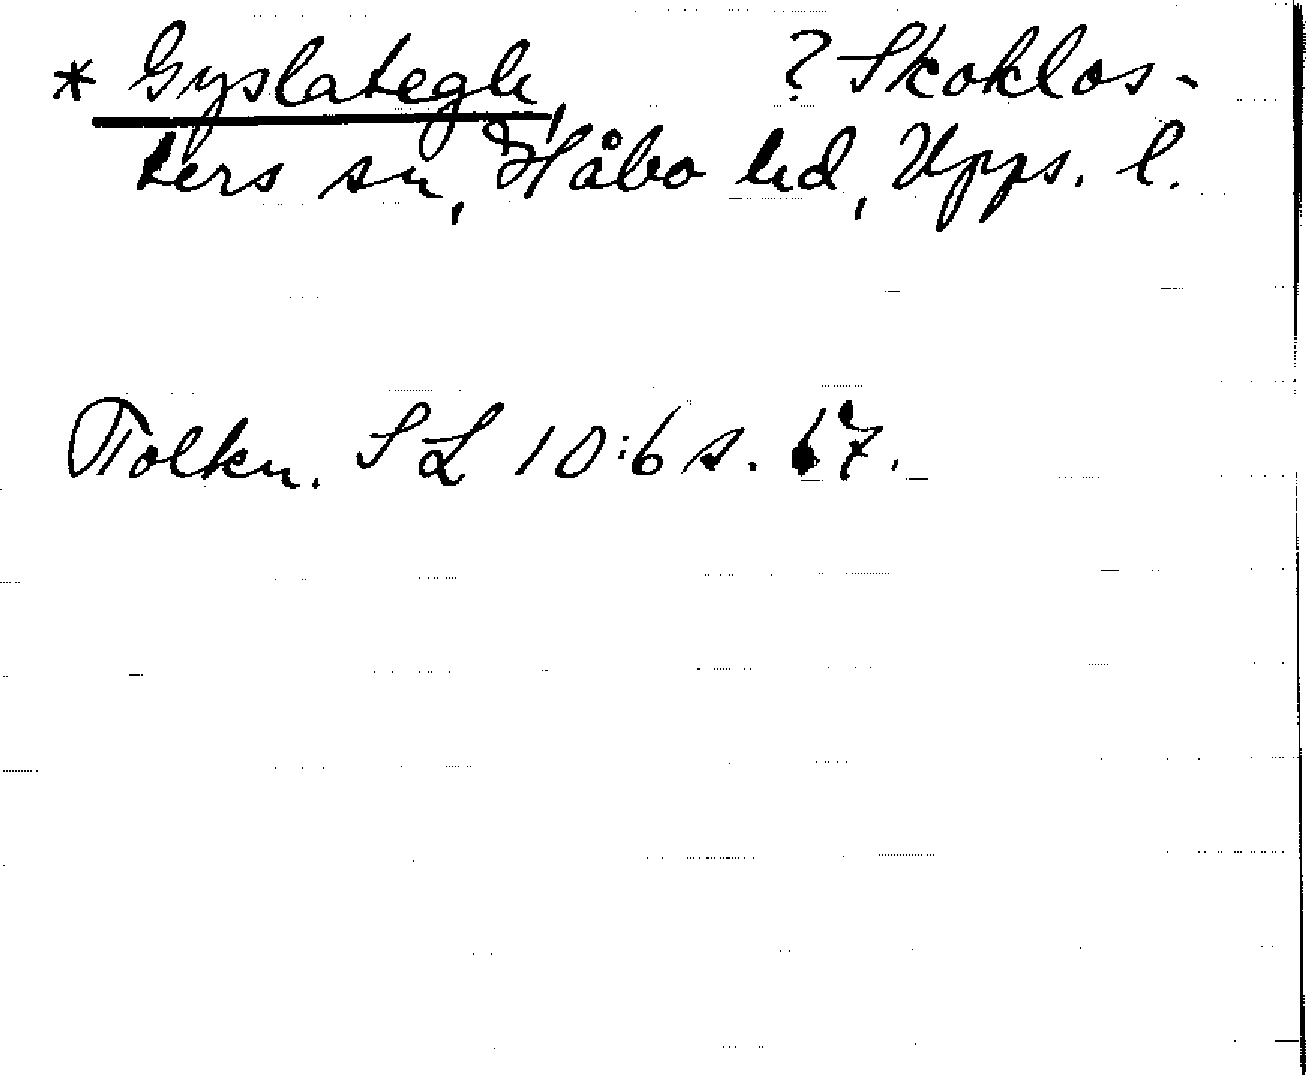 * Gyslategh, ? Skoklos-
ters sn, Håbo hd, Upps. l.
Tolkn. SL 10:6 s. 67.